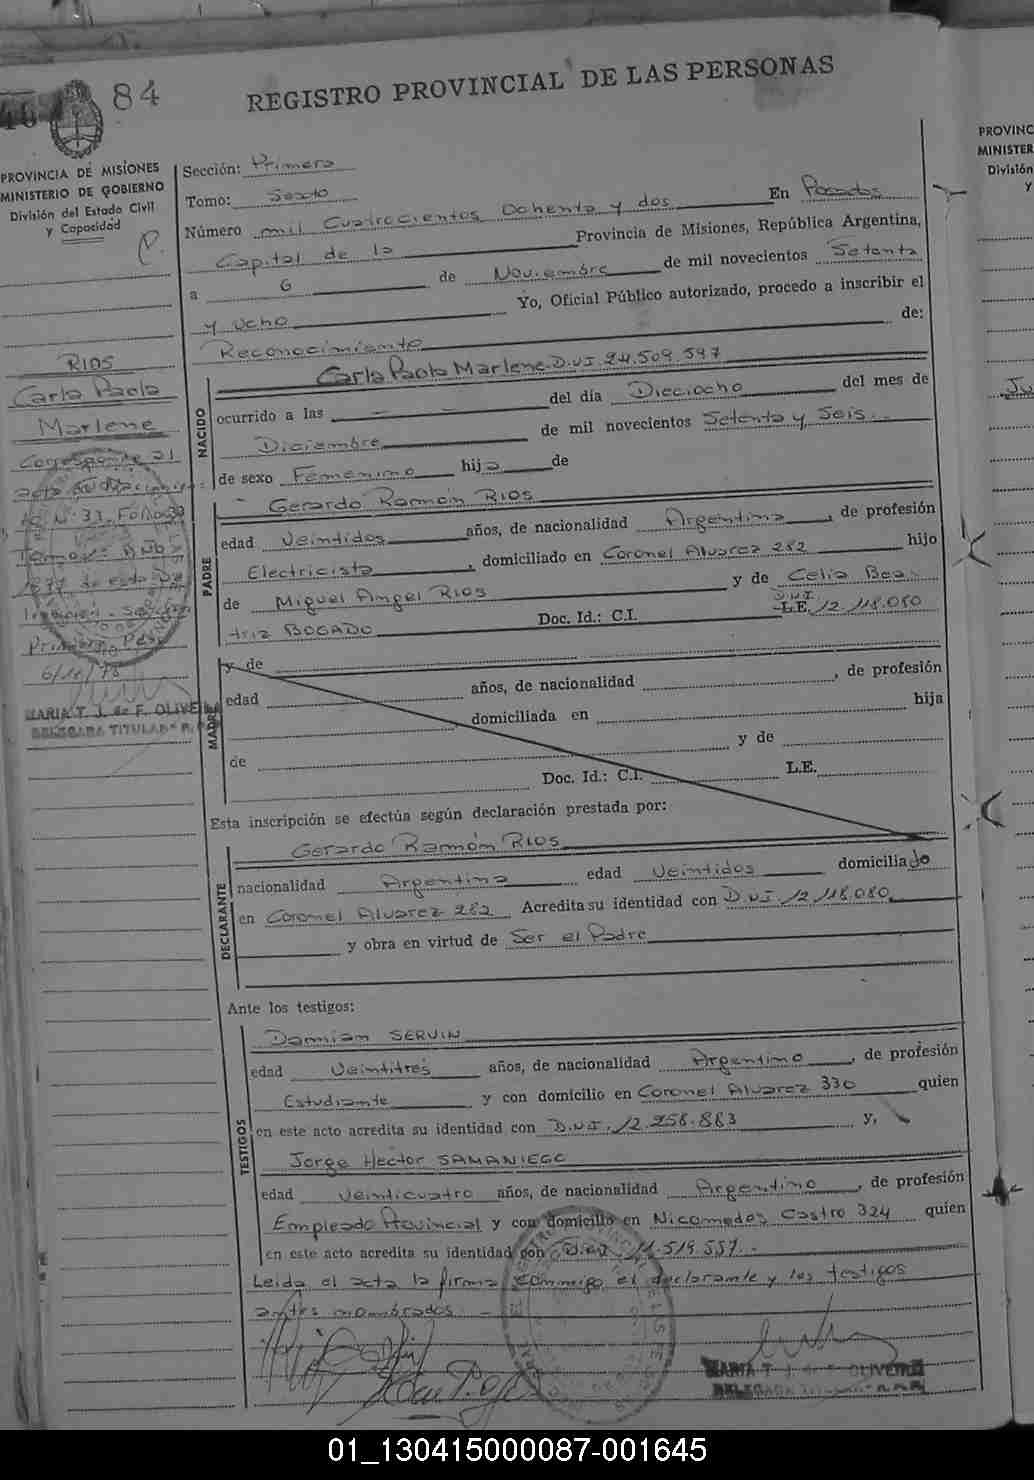 84
REGISTRO PROVINCIAL DE LAS PERSONAS
PROVINCIA DE MISIONES
MINISTERIO DE GOBIERNO
División del Estado Civil
y Capacidad
Sección: Primera
Tomo: Sexto
Número mil Cuatrocientos Ochenta y dos En Posadas
Capital de la Provincia de Misiones, República Argentina,
a 6 de Noviembre de mil novecientos Setenta
y Ocho Yo, Oficial Público autorizado, procedo a inscribir el
Reconocimiento de:
RIOS
Carla Paola
Marlene
Corresponde al
acta de Nacimien-
to Nº 33. Folio
Tomo Año
1977
Primera
6/11/78
MARIA T. J. de F. OLIVEIRA
DELEGADA TITULAR
NACIDO
Carla Paola Marlene D.N.I 24.509.597
ocurrido a las — — del día Dieciocho del mes de
Diciembre de mil novecientos Setenta y Seis.
de sexo Femenino hija de
PADRE
Gerardo Ramón RIOS
edad Veintidos años, de nacionalidad Argentina, de profesión
Electricista, domiciliado en Coronel Alvarez 282 hijo
de Miguel Angel RIOS y de Celia Bea-
triz BOGADO Doc. Id.: C.I. D.N.I. L.E. 12.118.080
MADRE
y de
edad años, de nacionalidad , de profesión
domiciliada en hija
de y de
Doc. Id.: C.I. L.E.
Esta inscripción se efectúa según declaración prestada por:
DECLARANTE
Gerardo Ramón RIOS
nacionalidad Argentina edad Veintidos domiciliado
en Coronel Alvarez 282 Acredita su identidad con D.N.I. 12.118.080
y obra en virtud de Ser el Padre
Ante los testigos:
TESTIGOS
Damian SERVIN
edad Veintitres años, de nacionalidad Argentino, de profesión
Estudiante y con domicilio en Coronel Alvarez 330 quien
en este acto acredita su identidad con D.N.I. 12.258.883 y,
Jorge Hector SAMANIEGO
edad Veinticuatro años, de nacionalidad Argentino, de profesión
Empleado Provincial y con domicilio en Nicomedes Castro 324 quien
en este acto acredita su identidad con D.N.I. 11.519.557.-
Leida el acta la firma conmigo el declarante y los testigos
antes nombrados. —
MARIA T. J. de F. OLIVEIRA
DELEGADA TITULAR
PROVINC
MINISTER
División
y
01_130415000087-001645